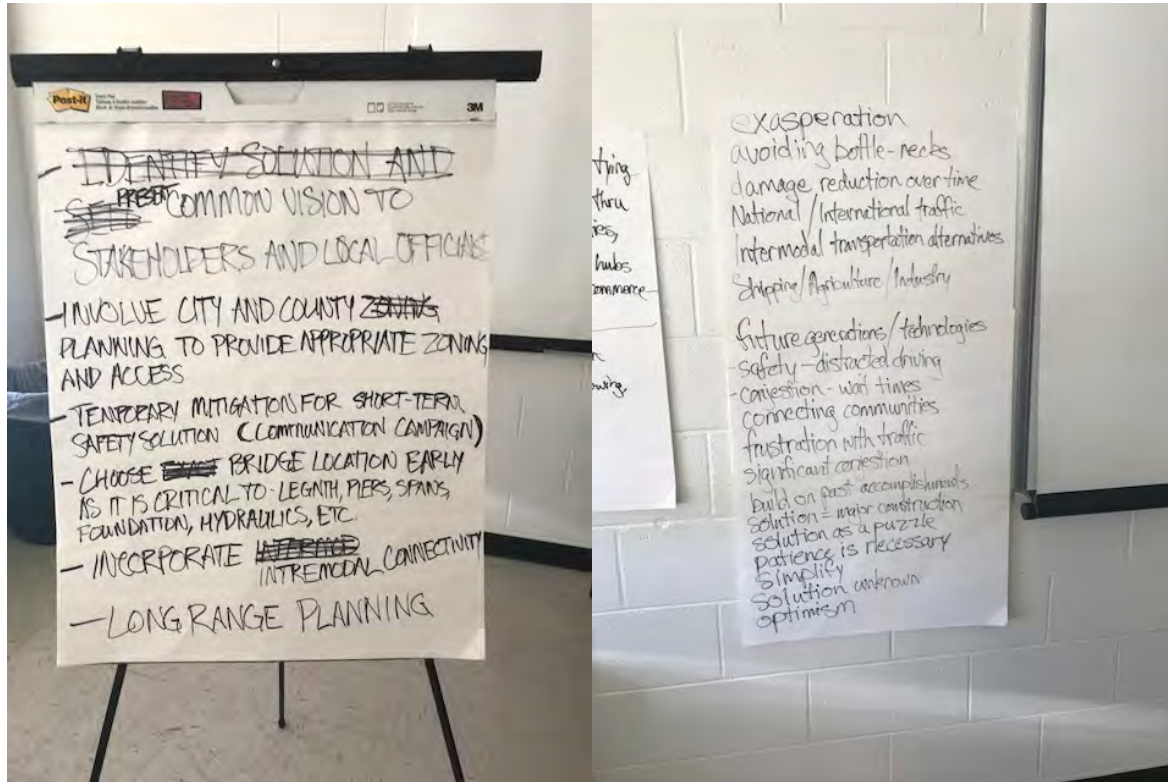 Post-it
3M
- IDENTIFY SOLUTION AND
PRESENT COMMON VISION TO
STAKEHOLDERS AND LOCAL OFFICIALS
- INVOLVE CITY AND COUNTY ZONING
PLANNING TO PROVIDE APPROPRIATE ZONING
AND ACCESS
- TEMPORARY MITIGATION FOR SHORT-TERM
SAFETY SOLUTION (COMMUNICATION CAMPAIGN)
- CHOOSE EXACT BRIDGE LOCATION EARLY
AS IT IS CRITICAL TO - LEGNTH, PIERS, SPANS,
FOUNDATION, HYDRAULICS, ETC.
- INCORPORATE
INTREMODAL CONNECTIVITY
- LONG RANGE PLANNING
thru
hubs
exasperation
avoiding bottle-necks
damage reduction over time
National/International traffic
Intermodal transportation alternatives
Shipping/Agriculture/Industry
future generations/technologies
- safety - distracted driving
- conjestion - wait times
connecting communities
frustration with traffic
significant conjestion
build on past accomplishments
solution = major construction
solution as a puzzle
patience is necessary
Simplify
solution unknown
optimism